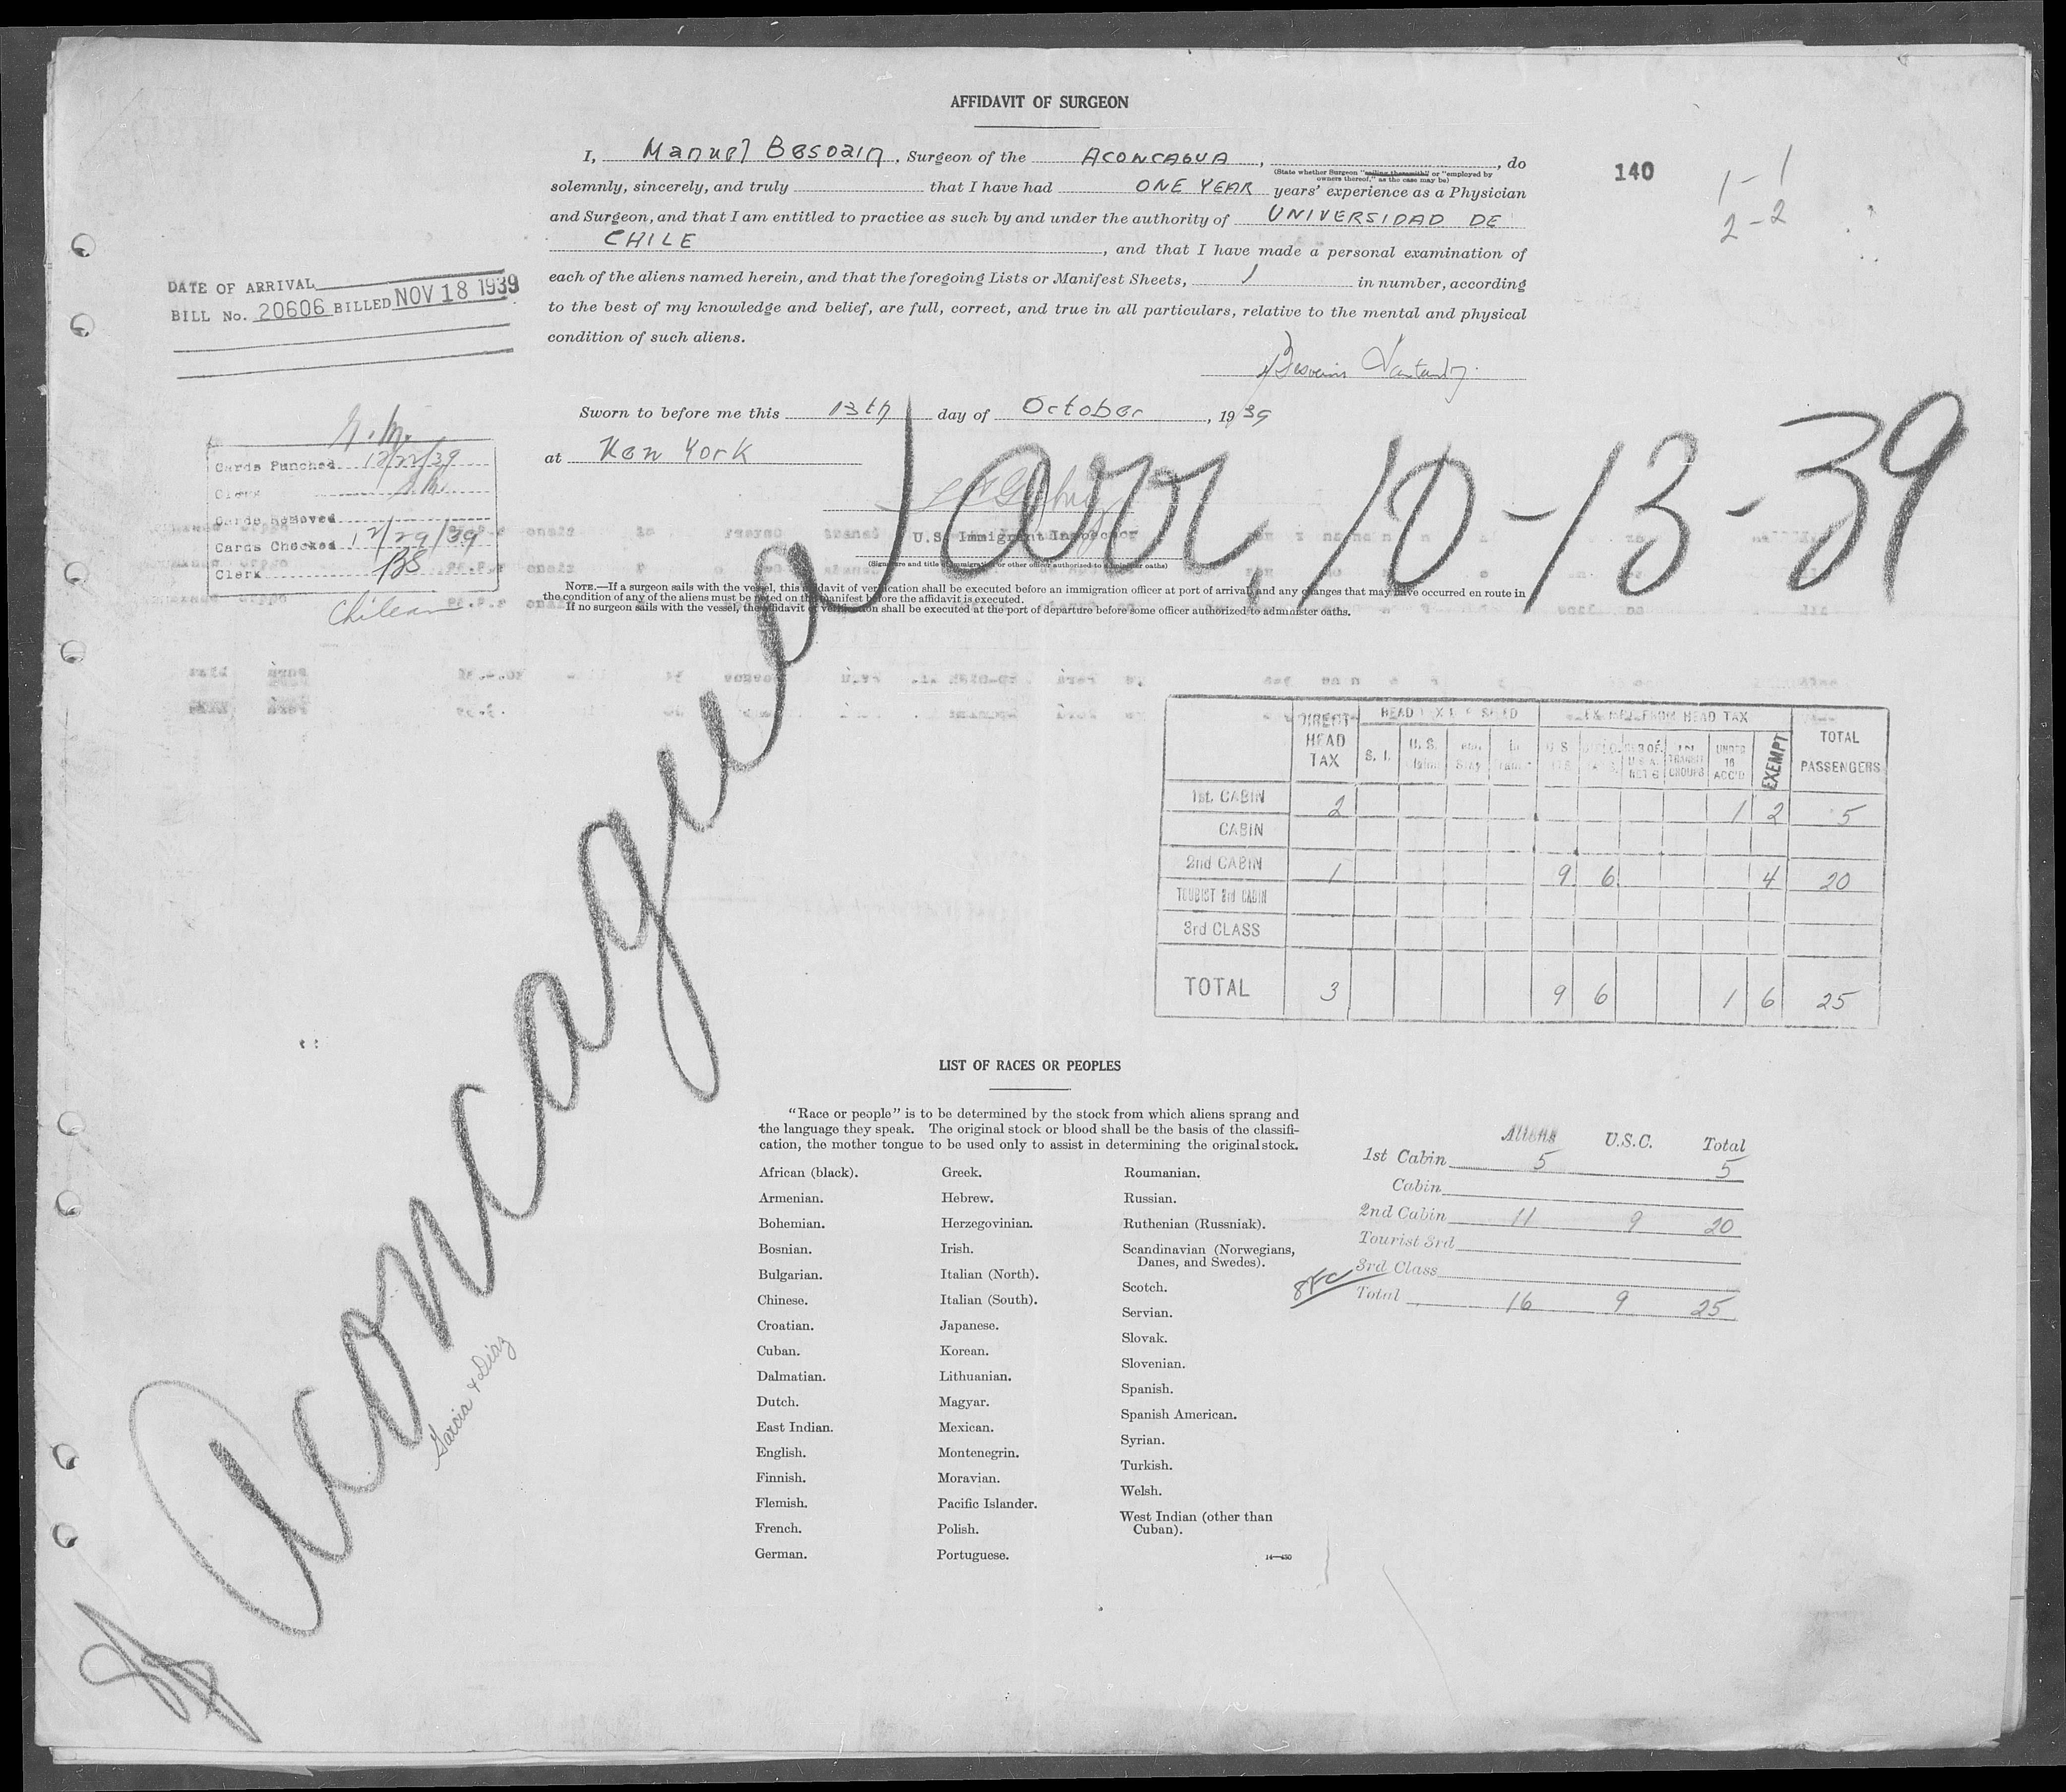 AFFIDAVIT OF SURGEON
I, Manuel Besoain, Surgeon of the ACONCAGUA, , do
(State whether Surgeon "sailing therewith" or "employed by
owners thereof," as the case may be)
solemnly, sincerely, and truly that I have had ONE YEAR years' experience as a Physician
and Surgeon, and that I am entitled to practice as such by and under the authority of UNIVERSIDAD DE
CHILE, and that I have made a personal examination of
each of the aliens named herein, and that the foregoing Lists or Manifest Sheets, 1 in number, according
to the best of my knowledge and belief, are full, correct, and true in all particulars, relative to the mental and physical
condition of such aliens.
140
1-1
2-2
DATE OF ARRIVAL
BILL No. 20606 BILLED NOV 18 1939
Sworn to before me this 13th day of October, 1939
at New York
U.S. Immigrant Inspector
(Signature and title of immigration or other officer authorized to administer oaths)
Cards Punched 12/22/39
Clerk
Cards Removed
Cards Checked 12/29/39
Clerk BS
Chilean
NOTE.—If a surgeon sails with the vessel, this affidavit of verification shall be executed before an immigration officer at port of arrival, and any changes that may have occurred en route in
the condition of any of the aliens must be noted on the manifest before the affidavit it is executed.
If no surgeon sails with the vessel, the affidavit of verification shall be executed at the port of departure before some officer authorized to administer oaths.
arr. 10-13-39
Aconcagua
Garcia & Diaz
DIRECT HEAD TAX
EXEMPT FROM HEAD TAX
S. I.
UNDER 16 ACC'D
EXEMPT
TOTAL PASSENGERS
1st. CABIN 2 1 2 5
CABIN
2nd CABIN 1 9 6 4 20
TOURIST 3rd CABIN
3rd CLASS
TOTAL 3 9 6 1 6 25
LIST OF RACES OR PEOPLES
"Race or people" is to be determined by the stock from which aliens sprang and
the language they speak. The original stock or blood shall be the basis of the classifi-
cation, the mother tongue to be used only to assist in determining the original stock.
African (black).
Armenian.
Bohemian.
Bosnian.
Bulgarian.
Chinese.
Croatian.
Cuban.
Dalmatian.
Dutch.
East Indian.
English.
Finnish.
Flemish.
French.
German.
Greek.
Hebrew.
Herzegovinian.
Irish.
Italian (North).
Italian (South).
Japanese.
Korean.
Lithuanian.
Magyar.
Mexican.
Montenegrin.
Moravian.
Pacific Islander.
Polish.
Portuguese.
Roumanian.
Russian.
Ruthenian (Russniak).
Scandinavian (Norwegians,
Danes, and Swedes).
Scotch.
Servian.
Slovak.
Slovenian.
Spanish.
Spanish American.
Syrian.
Turkish.
Welsh.
West Indian (other than
Cuban).
14—430
Aliens U.S.C. Total
1st Cabin 5 5
Cabin
2nd Cabin 11 9 20
Tourist 3rd
3rd Class
Total 16 9 25